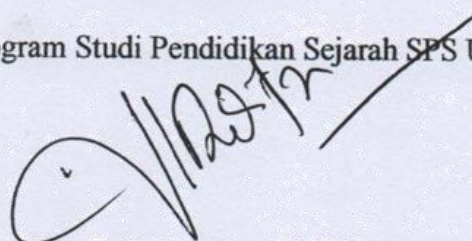 gram Studi Pendidikan Sejarah SPS U